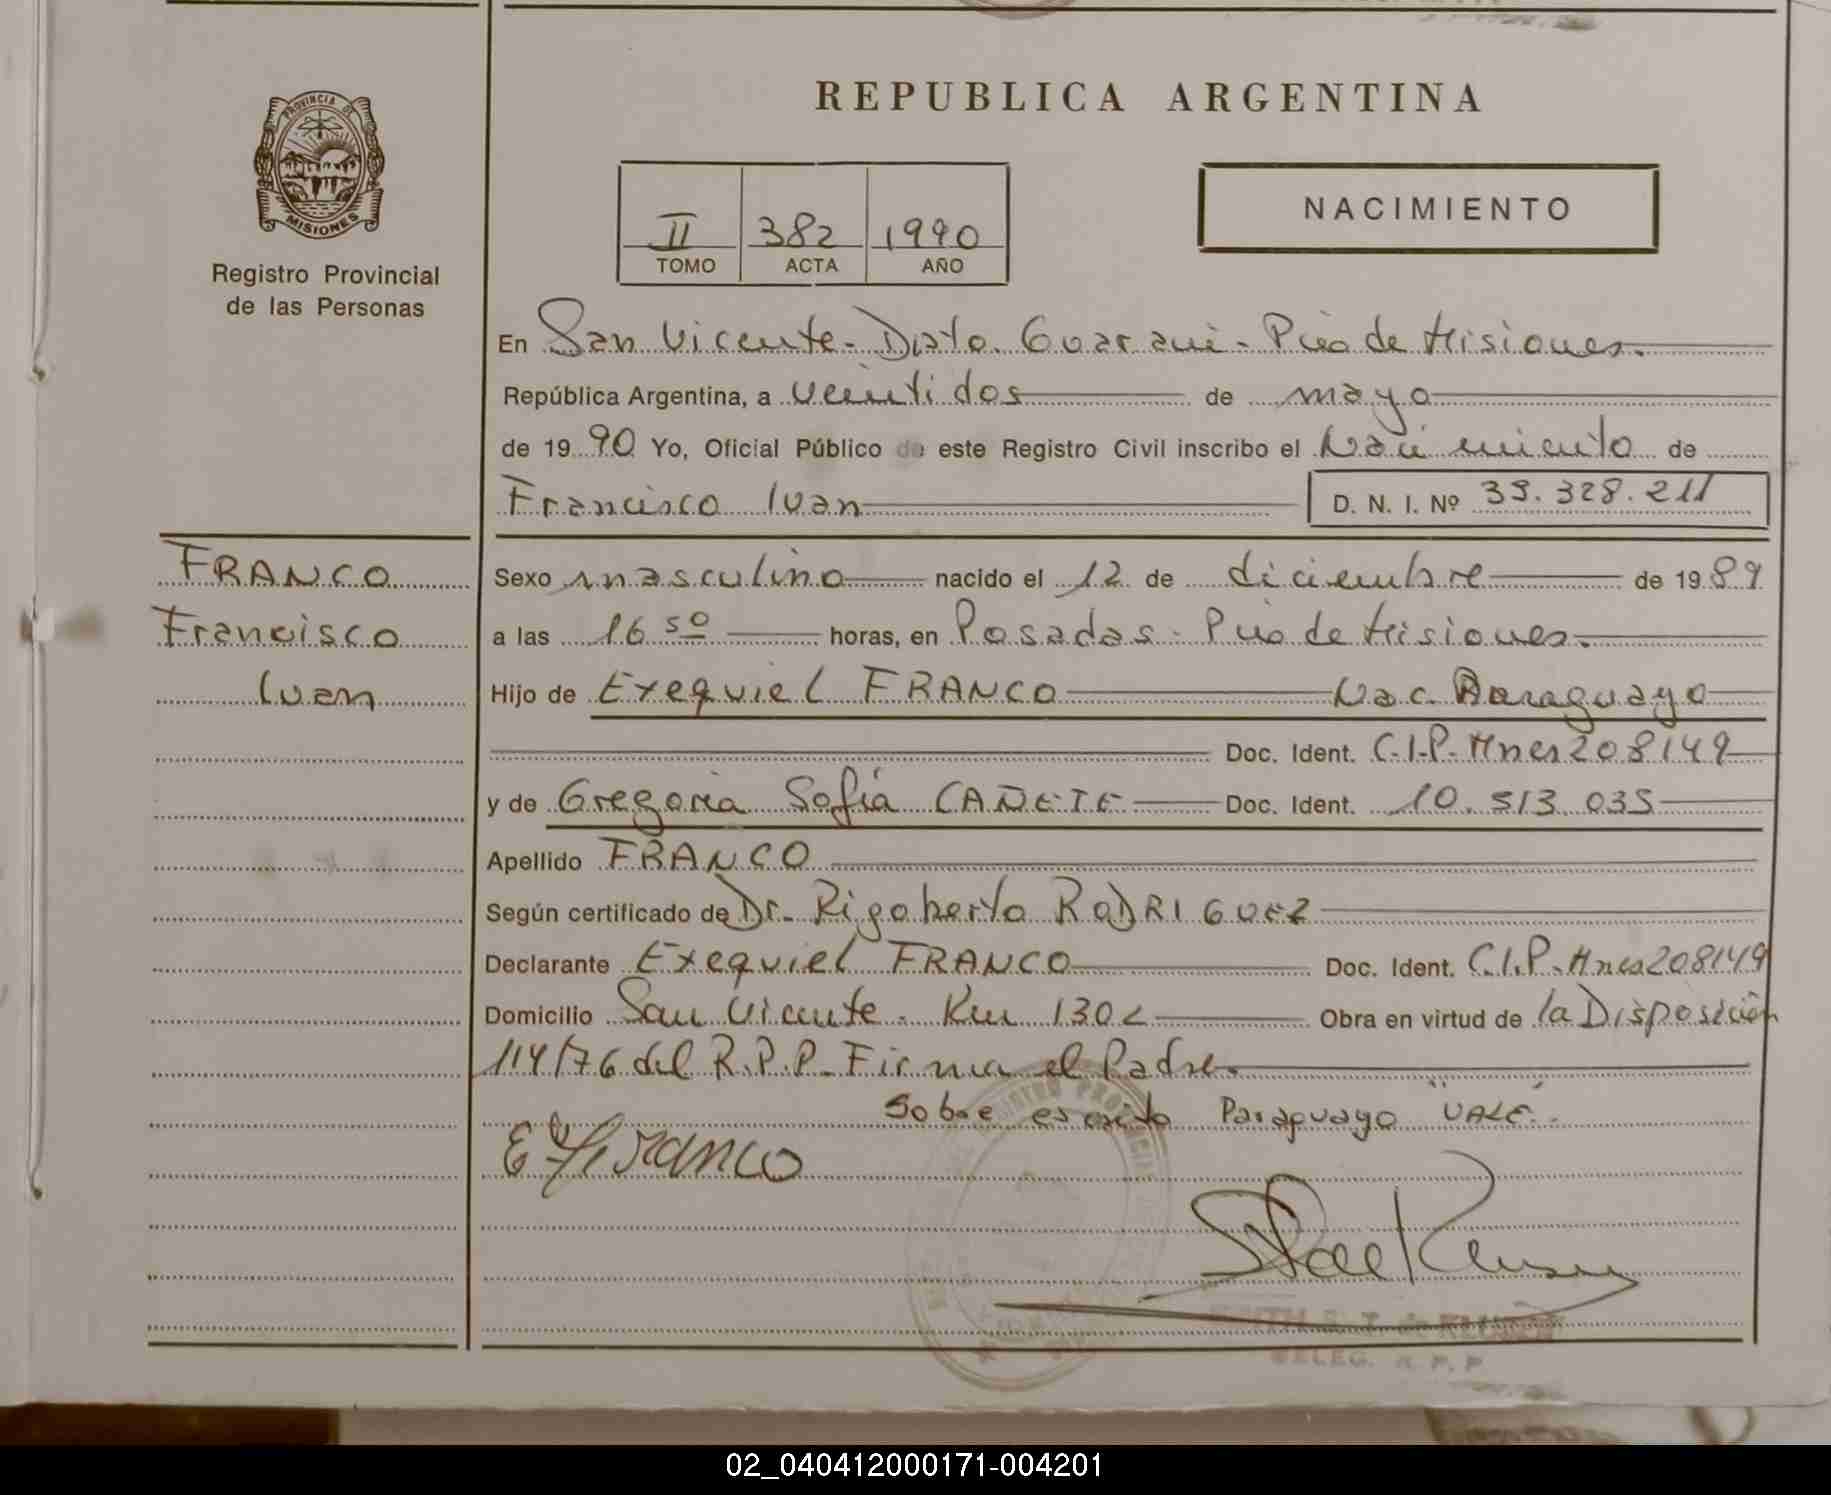 REPUBLICA ARGENTINA
PROVINCIA DE
MISIONES
Registro Provincial
de las Personas
II 382 1990
TOMO ACTA AÑO
NACIMIENTO
En San Vicente - Dpto. Guaraní - Pcia de Misiones.
República Argentina, a veintidos de mayo
de 1990 Yo, Oficial Público de este Registro Civil inscribo el Nacimiento de
Francisco Ivan D. N. I. Nº 35.328.211
FRANCO
Francisco
Ivan
Sexo masculino nacido el 12 de diciembre de 1989
a las 16 50 horas, en Posadas - Pcia de Misiones.
Hijo de Exequiel FRANCO Nac. Paraguayo
Doc. Ident. C.I.P. Mnes 208149
y de Gregoria Sofía CAÑETE Doc. Ident. 10.513.035
Apellido FRANCO
Según certificado de Dr. Rigoberto RODRIGUEZ
Declarante Exequiel FRANCO Doc. Ident. C.I.P. Mnes 208149
Domicilio San Vicente. Km 1302 Obra en virtud de la Disposición
114/76 del R.P.P. Firma el Padre.
Sobre escrito Paraguayo VALE.
DELEG. R. P. P
02_040412000171-004201